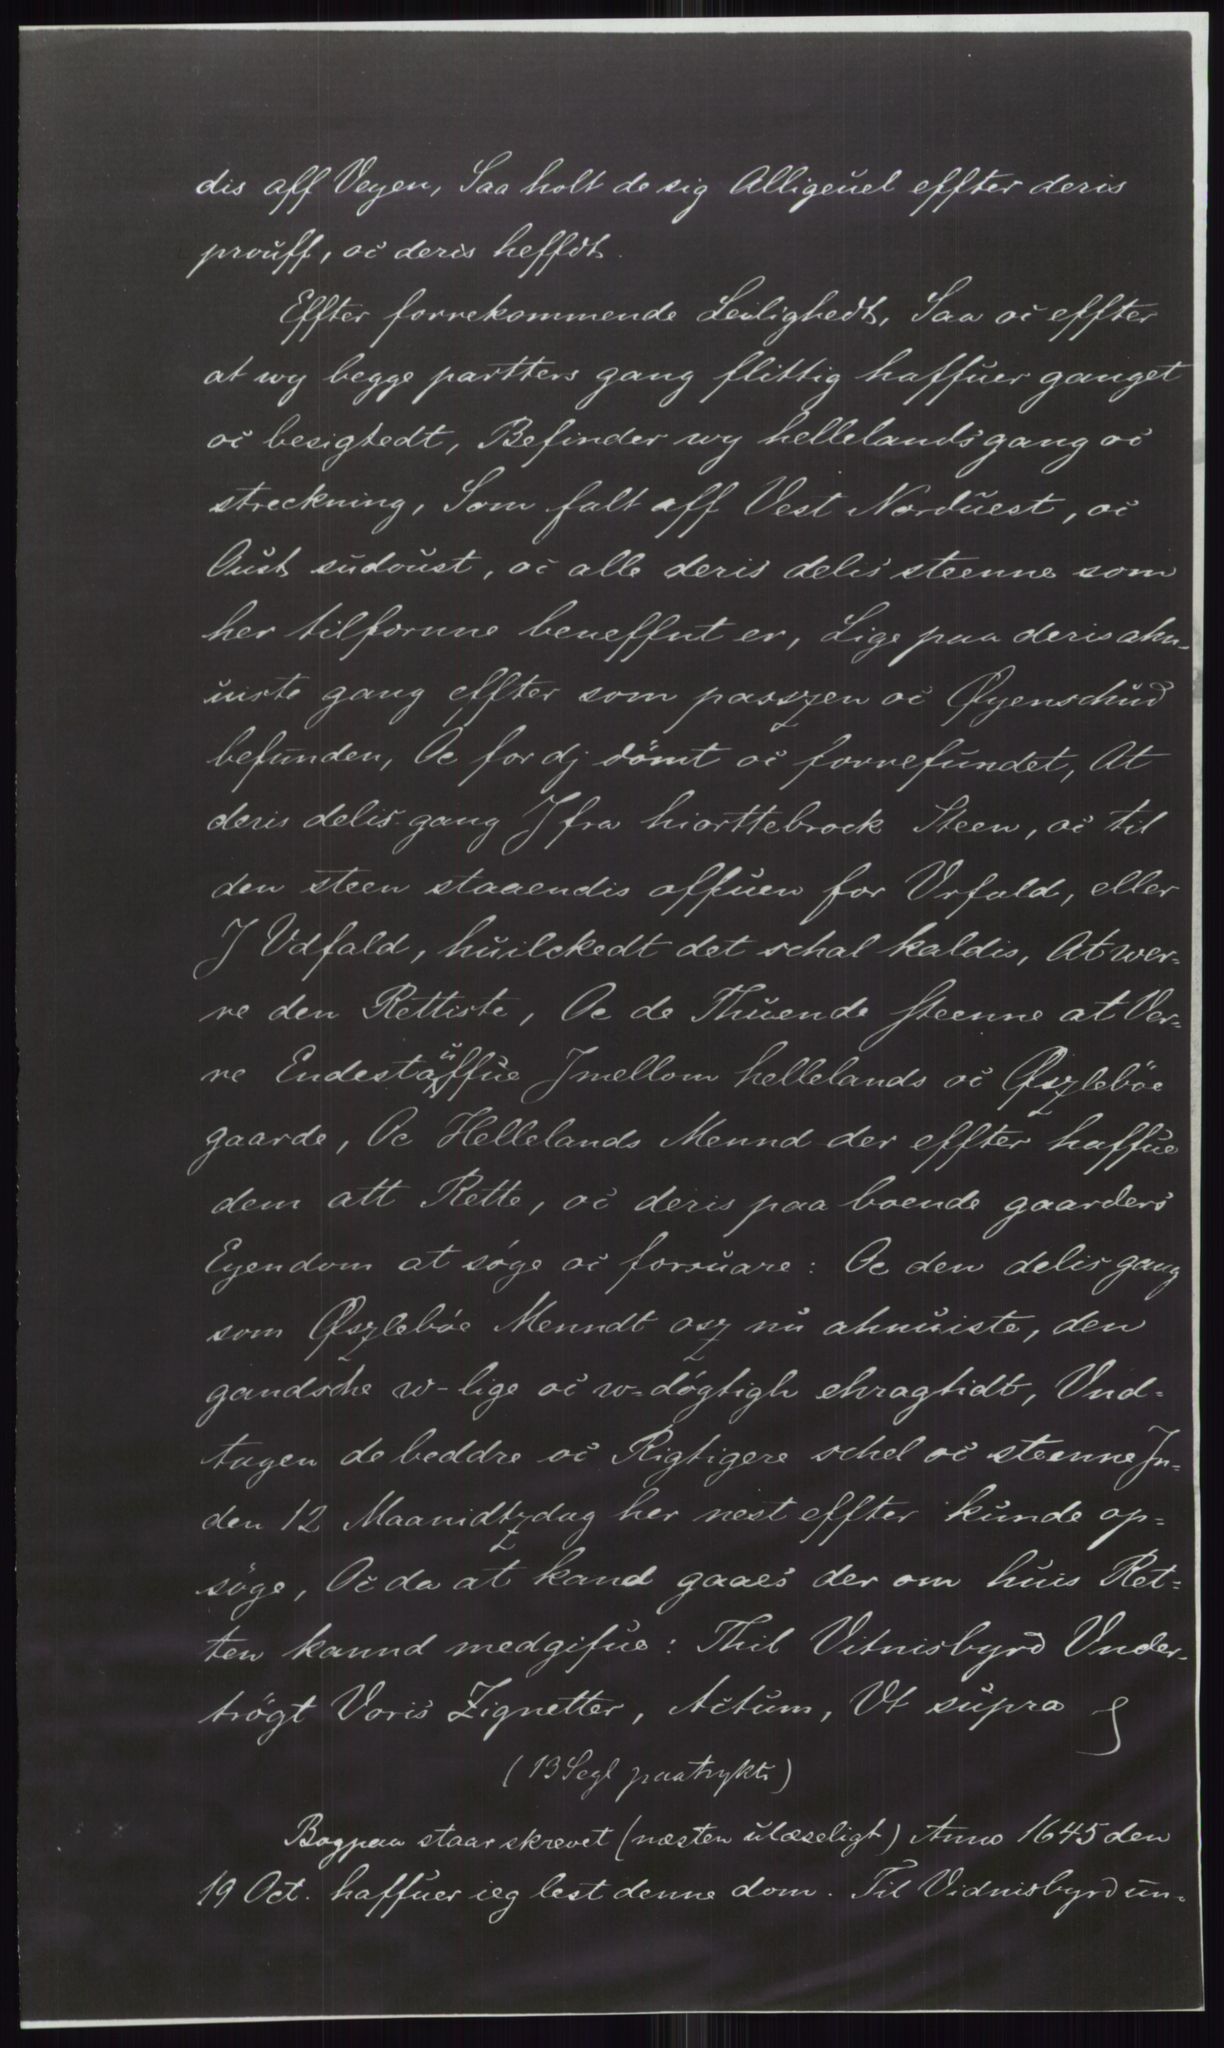 dis aff Veyen, Saa holt de sig Alligeuel effter deris
prouff, oc deris heffdt.
Effter forrekommende Leilighedt, Saa oc effter
at wy begge partters gang flittig haffuer ganget
oc besigtedt, Befinder wy hellelands gang oc
streckning, Som falt aff Vest Norduest, oc
Oust sudoust, oc alle deris delis steenne som
her tilfornne beneffnt er, Lige paa deris ahn-
uiste gang effter som passzen oc Øyenschud
befunden, Oc for dj dömt oc forrefundet, At
deris delis gang J fra hiorttebrock Steen, oc til
den steen staaendis offuen for Vrfald, eller
J Vdfald, huilckedt det schal kaldis, At wer-
re den Rettiste, Oc de Thuende steenne at Ver-
re Endestauffue Jmellom hellelands oc Øszlebøe
gaarde, Oc Hellelands Mennd der effter haffue
dem att Rette, oc deris paa boende gaarders
Eyendom at søge oc forsuare: Oc den delis gang
som Øszlebøe Menndt osz nu ahnuiste, den
gandsche w-lige oc w-døgtigh ehragtidt, Vnd-
tagen de beddre oc Rigtigere schel oc steenne Jn-
den 12 Maanidtzdag her nest effter kunde op-
søge, Oc da at kand gaaes der om huis Ret-
ten kannd medgifue: Thil Vitnisbyrd Vnder-
trögt Voris Zignetter, Actum, Vt supra
(13 Segl paatrykt)
Bagpaa staar skrevet (næsten ulæseligt) Anno 1645 den
19 Oct. haffuer ieg lest denne dom. Til Vidnisbyrd un-